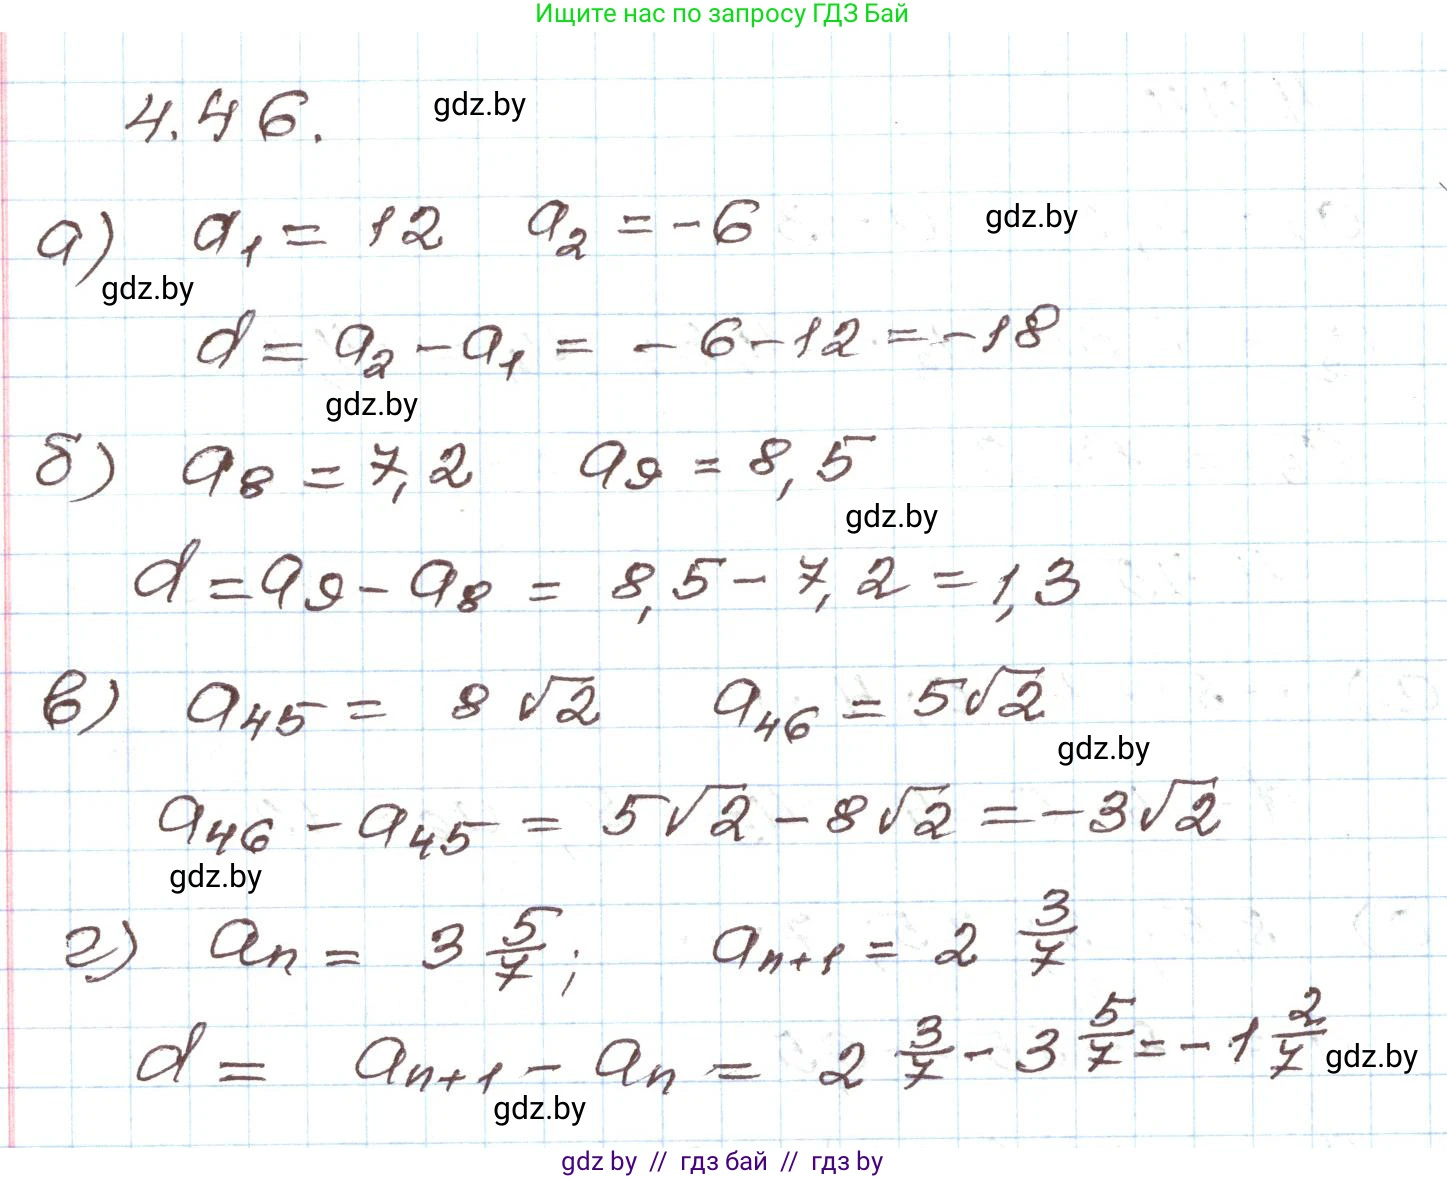 Ищите нас по запросу ГДЗ Бай
4.46.
gdz.by
а) a₁ = 12 a₂ = -6
gdz.by
gdz.by
d = a₂ - a₁ = -6-12 = -18
gdz.by
б) a₈ = 7,2 a₉ = 8,5
gdz.by
d = a₉ - a₈ = 8,5 - 7,2 = 1,3
в) a₄₅ = 8√2 a₄₆ = 5√2
gdz.by
a₄₆ - a₄₅ = 5√2 - 8√2 = -3√2
gdz.by
г) aₙ = 3 5/7; aₙ₊₁ = 2 3/7
d = aₙ₊₁ - aₙ = 2 3/7 - 3 5/7 = -1 2/7
gdz.by
gdz.by
gdz by // гдз бай // гдз by